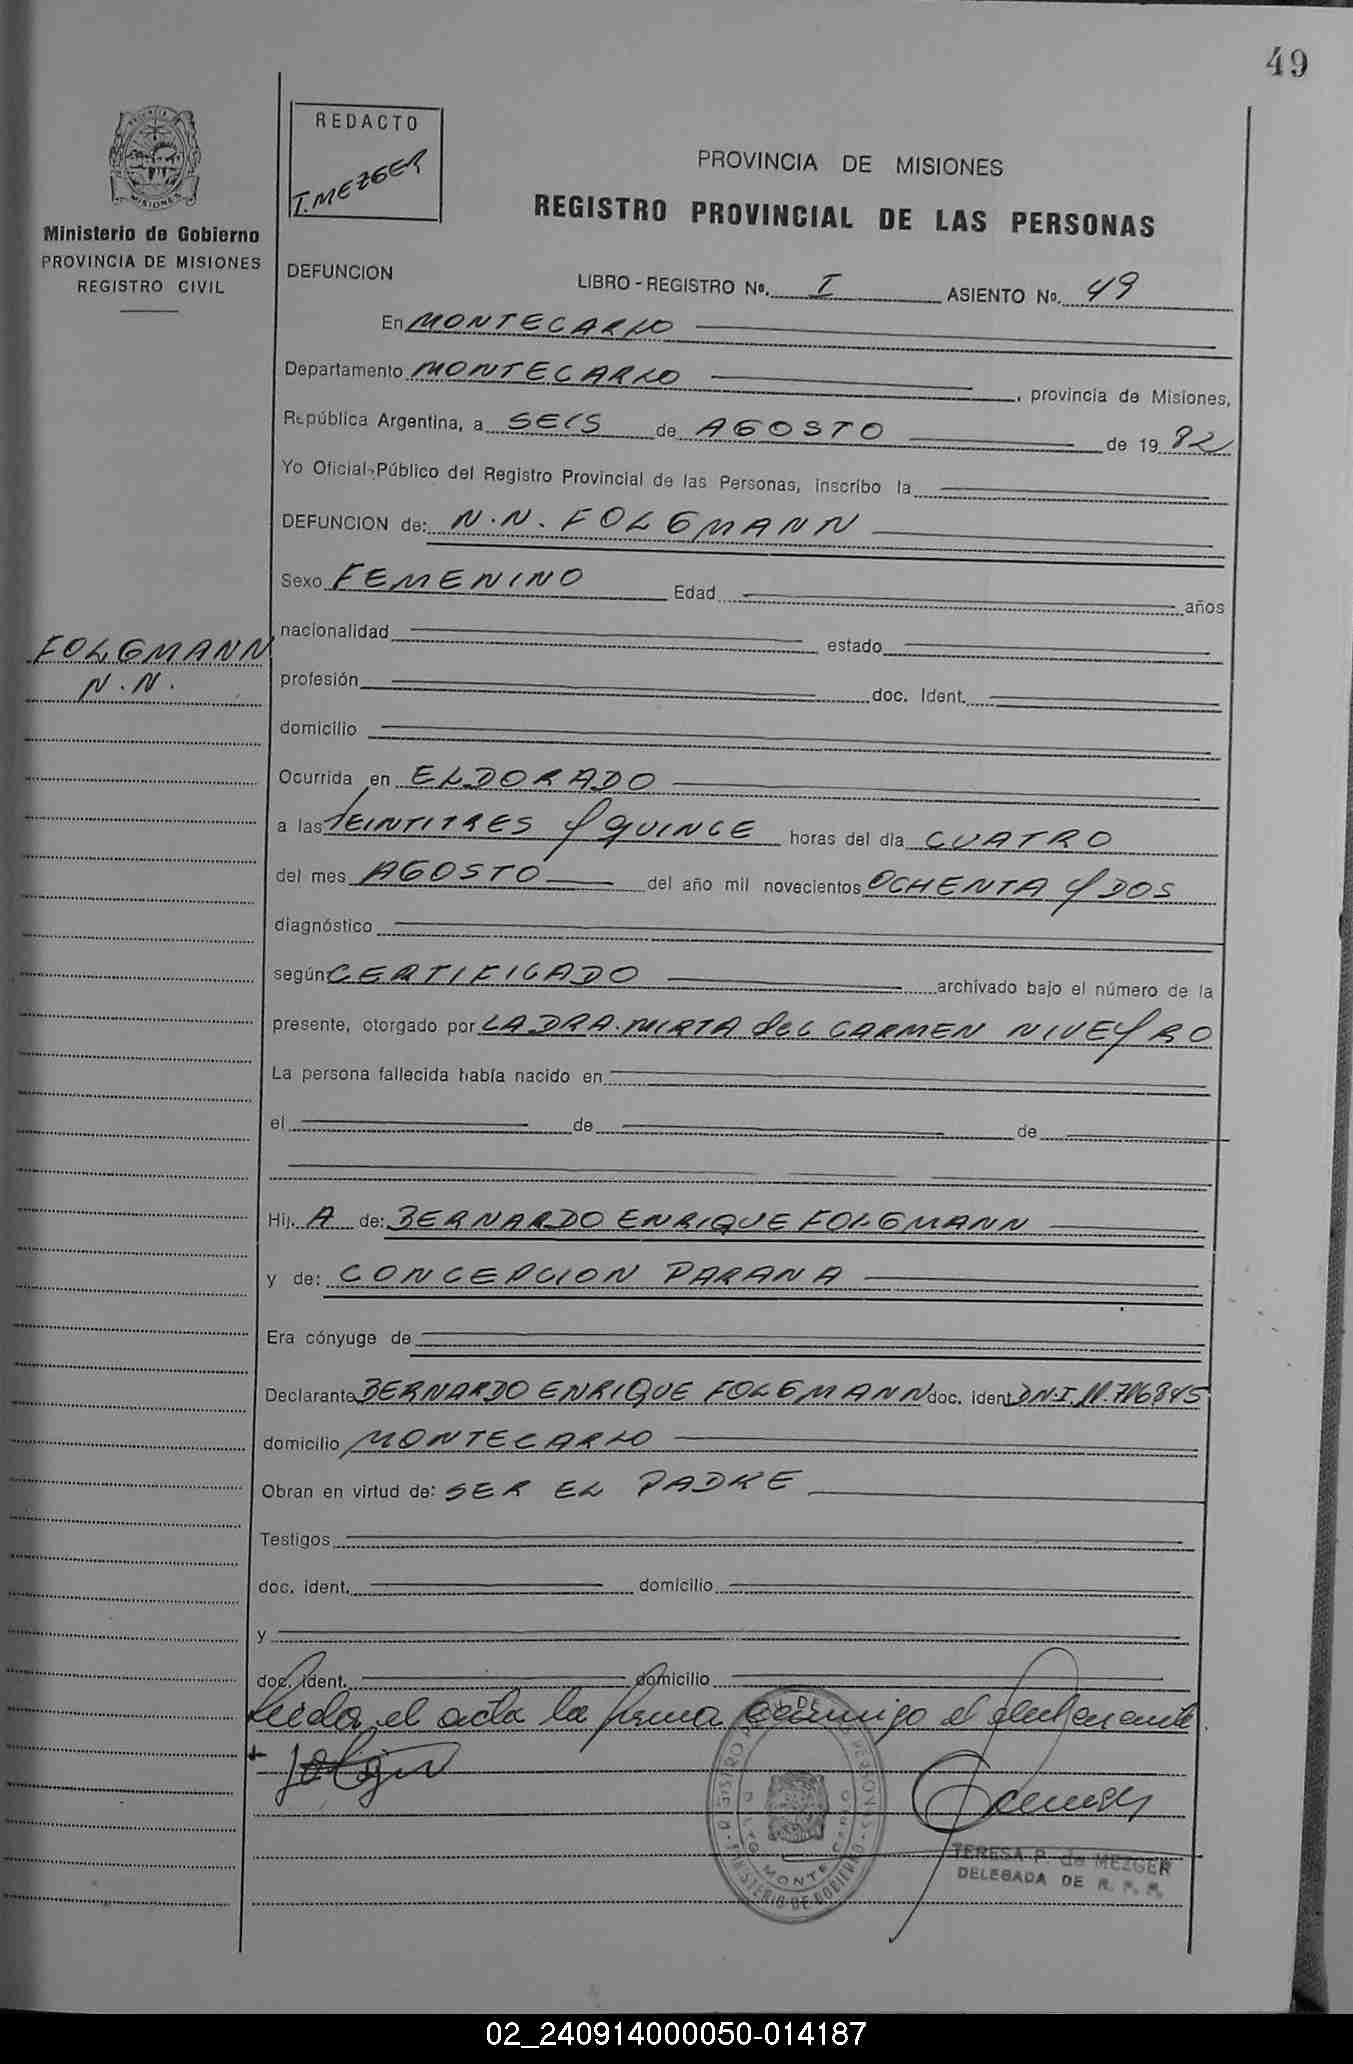 49
REDACTO
T. MEZGER
Ministerio de Gobierno
PROVINCIA DE MISIONES
REGISTRO CIVIL
PROVINCIA DE MISIONES
REGISTRO PROVINCIAL DE LAS PERSONAS
DEFUNCION LIBRO - REGISTRO Nº. I ASIENTO Nº. 49
En MONTECARLO
Departamento MONTECARLO, provincia de Misiones,
República Argentina, a SEIS de AGOSTO de 19 82
Yo Oficial Público del Registro Provincial de las Personas, inscribo la
DEFUNCION de: N.N. FOLGMANN
Sexo FEMENINO Edad años
nacionalidad estado
FOLGMANN
N.N.
profesión doc. Ident.
domicilio
Ocurrida en ELDORADO
a las VEINTITRES Y QUINCE horas del día CUATRO
del mes AGOSTO del año mil novecientos OCHENTA Y DOS
diagnóstico
según CERTIFICADO archivado bajo el número de la
presente, otorgado por LA DRA. MIRTA del CARMEN NIVEYRO
La persona fallecida había nacido en
el de de
Hij. A de: BERNARDO ENRIQUE FOLGMANN
y de: CONCEPCION PARANA
Era cónyuge de
Declarante BERNARDO ENRIQUE FOLGMANN doc. ident. DN.I. 11.716845
domicilio MONTECARLO
Obran en virtud de: SER EL PADRE
Testigos
doc. ident. domicilio
y
doc. ident. domicilio
Leida el acta la firma conmigo el declarante
TERESA P. de MEZGER
DELEGADA DE R. P. P.
02_240914000050-014187